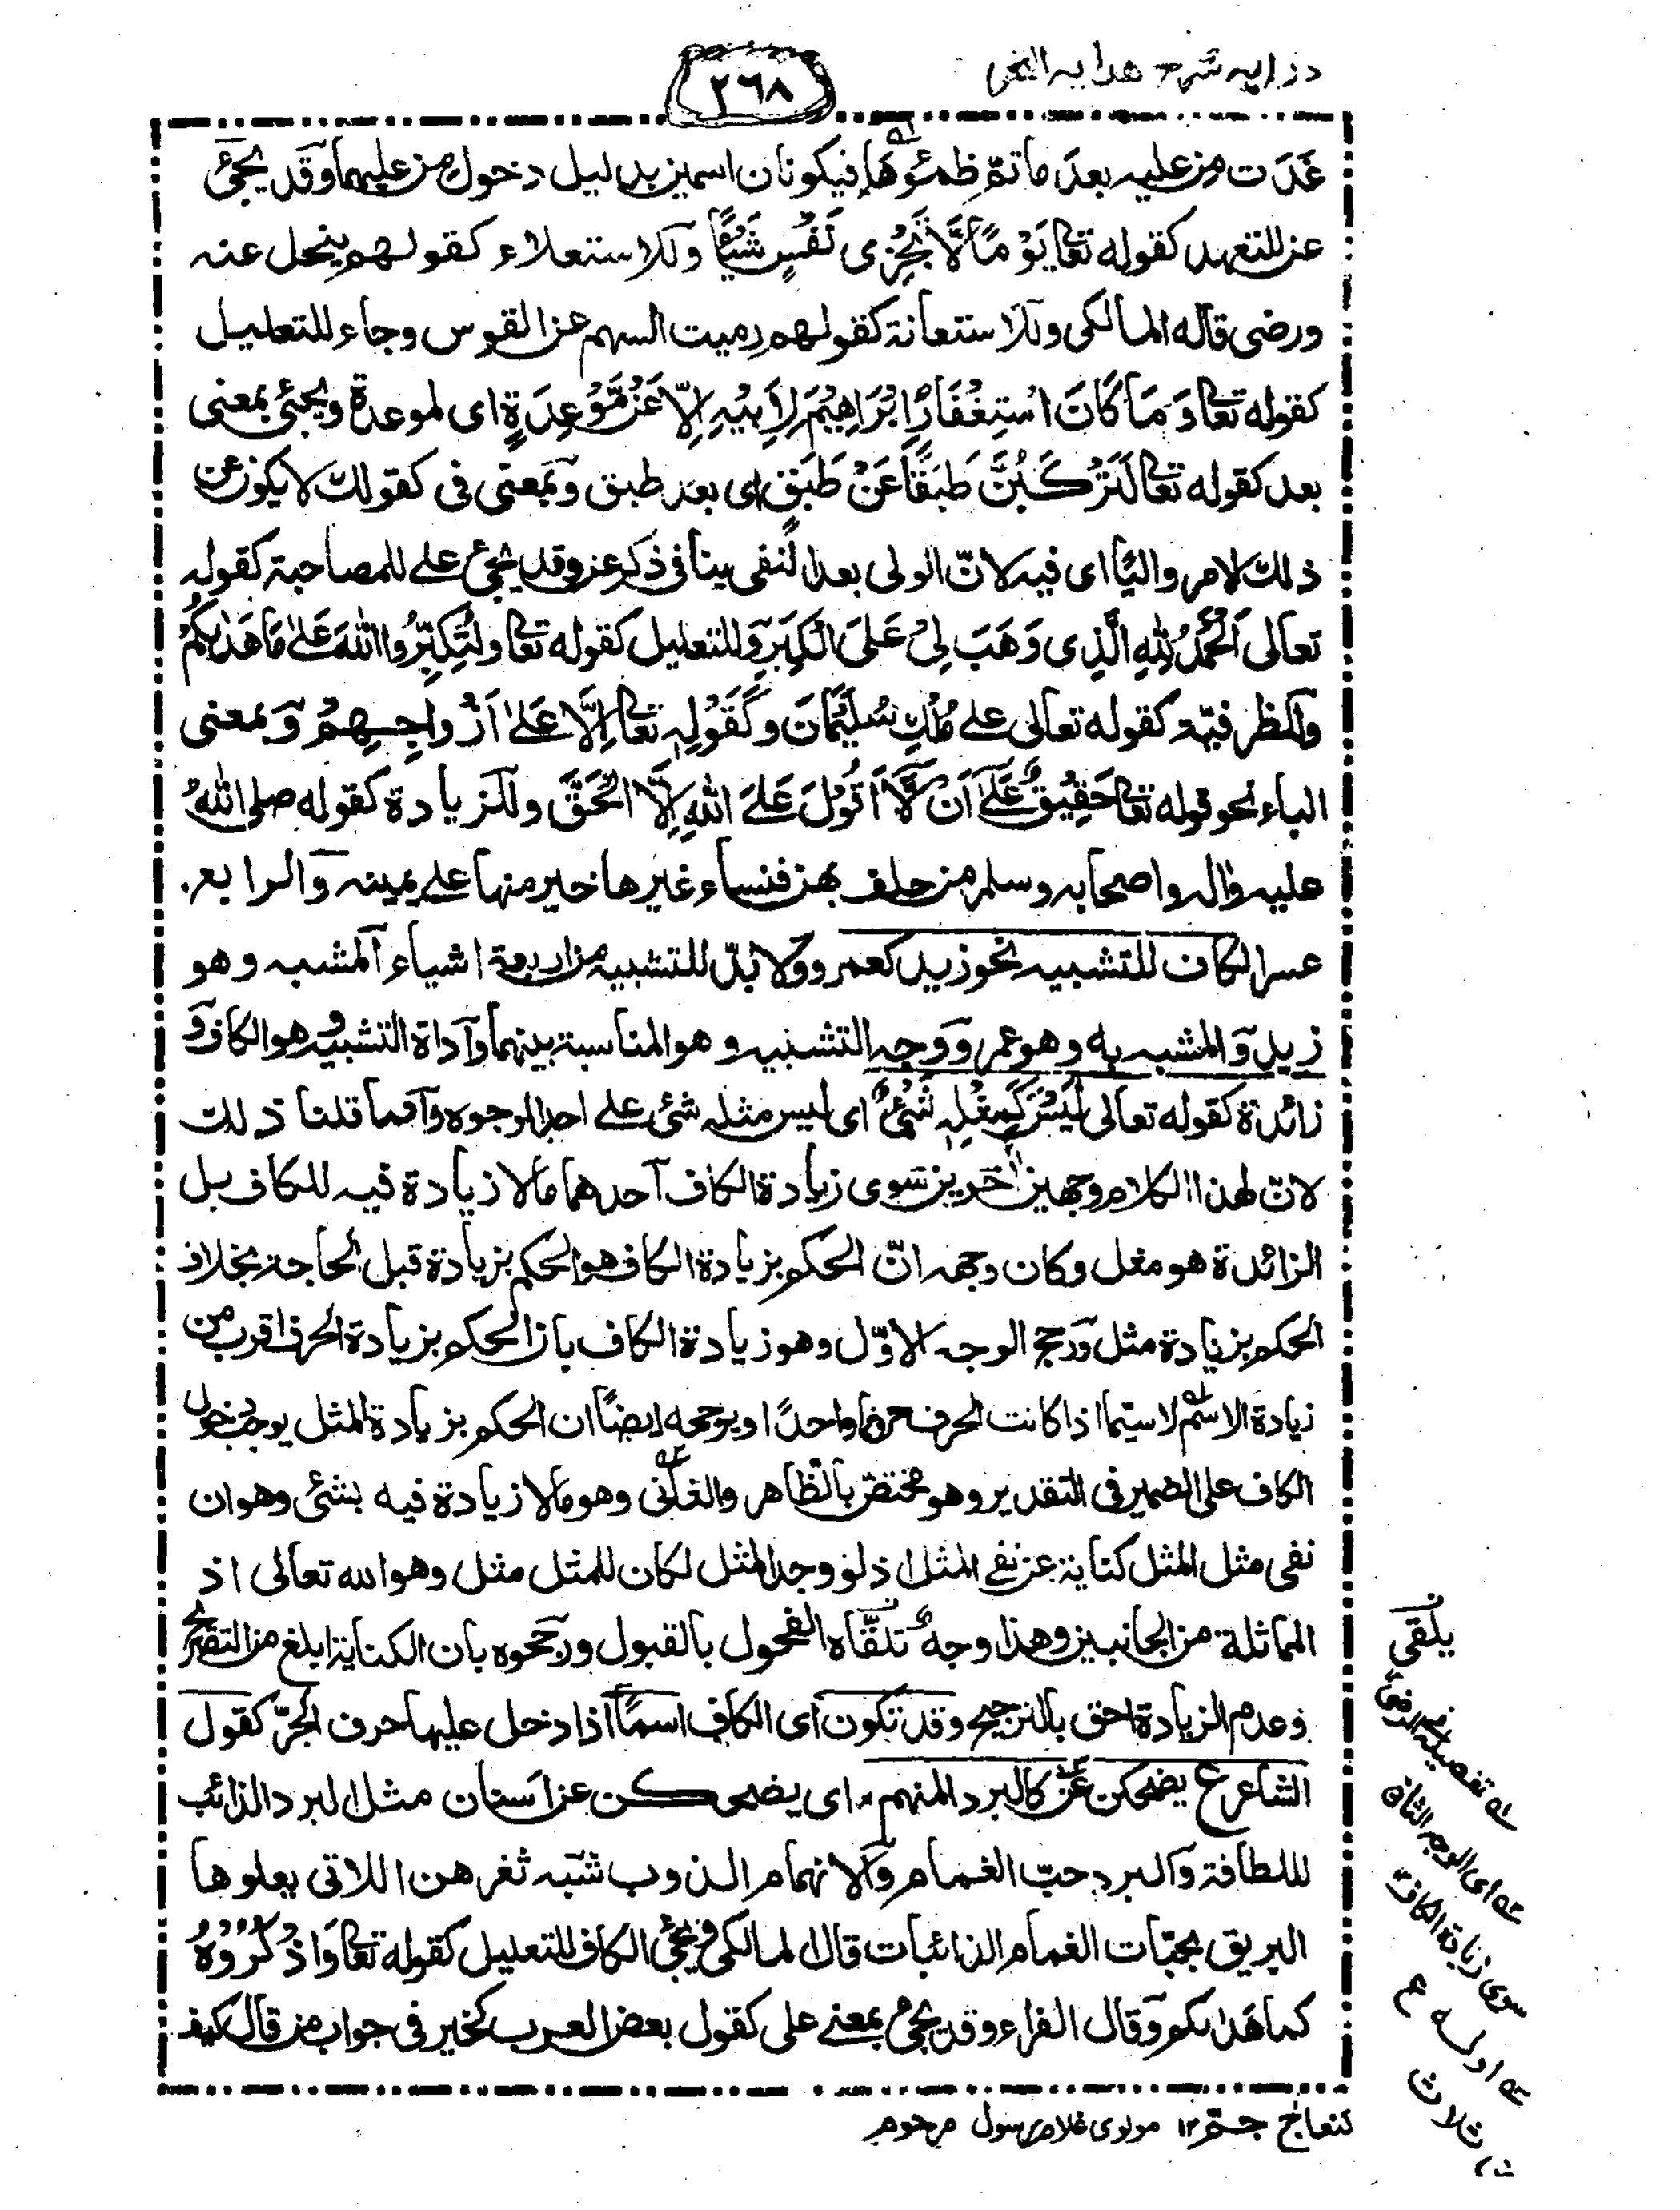 درایه شرح هدایه النحو
٢٦٨
غَدَت من عليه بعدَ ما تمّ ظمئوها فيكونان اسمين بدليل دخول من عليهما وقد يجئ
عن للتعهد كقوله تعا يَوْمًا لَّا تَجْزِى نَفْسٍ شَيْئًا وللاستعلاء كقولهم ينحل عنه
ورضى قاله المالكى وللاستعانة كقولهم رميت السهم عن القوس وجاء للتعليل
كقوله تعا وَمَا كَانَ اسْتِغْفَارُ اِبْرَاهِيْمَ لِاَبِيْهِ اِلَّا عَنْ مَّوْعِدَةٍ اى لموعدة ويجئ بمعنى
بعد كقوله تعا لَتَرْكَبُنَّ طَبَقًا عَنْ طَبَقٍ اى بعد طبق وبمعنى فى كقولك لا يكون عن
ذلك لامر واليًا اى فيه لانّ الولى بعد النفى ينافى ذكر عن وقد يجئ على للمصاحبة كقوله
تعالى اَلْحَمْدُ لِلّٰهِ الَّذِى وَهَبَ لِىْ عَلَى الْكِبَرِ وللتعليل كقوله تعا ولِتُكَبِّرُوا اللّٰهَ عَلٰى مَا هَدٰىكُمْ
وللظرفيّة كقوله تعالى على مُلْكِ سُلَيْمَانَ وكَقَوْلِهٖ تعا اِلَّا عَلٰى اَزْوَاجِهِمْ وبمعنى
الباء نحو قوله تعا حَقِيْقٌ عَلٰٓى اَنْ لَّا اَقُوْلَ عَلَى اللّٰهِ اِلَّا الْحَقَّ وللزيادة كقوله صلى اللهُ
عليه واله واصحابه وسلم من حلف بهن فنساء غيرها خير منها على يمينه والرابع
عسر الكاف للتشبيه نحو زيد كعمر وولا بدّ للتشبيه من اربعة اشياء المشبه وهو
زيد والمشبه به وهو عمر ووجه التشبيه وهو المناسبة بينهما وآداة التشبيه وهو الكاف و
زائدة كقوله تعالى لَيْسَ كَمِثْلِهٖ شَئٌ اى ليس مثله شئ على احد الوجوه وآنما قلنا ذلك
لانّ لهذا الكلام وجهين آخرين سوى زيادة الكاف آحدهما مالا زيادة فيه للكاف بل
الزائدة هو مثل وكان وجهه انّ الحكم بزيادة الكاف هو الحكم بزيادة قبل الحاجة بخلاف
الحكم بزيادة مثل ورجح الوجه الاوّل وهو زيادة الكاف بان الحكم بزيادة الحرف اقرب من
زيادة الاسم لاسيّما اذا كانت الحرف حرفا واحدًا ويرجحه ايضًا ان الحكم بزيادة المثل يوجب دخول
الكاف على الضمير فى التقدير وهو مختص بالظاهر والثانى وهو مالا زيادة فيه بشئ وهو ان
نفى مثل المثل كناية عن نفے المثل اذ لو وجد المثل لكان للمثل مثل وهو الله تعالى اذ
المماثلة من الجانبين وهذا وجهٌ تلقّاه الفحول بالقبول ورجحوه بان الكناية ابلغ من التصريح
وعدم الزيادة احق بالترجيح وقد تكون اى الكاف اسمًا اذا دخل عليها حرف الجرّ كقول
الشاعر ع يضحكن عن كالبرد المنهم، اى يضحكن عن اسنان مثل البرد الذائب
لللطافة والبرد حبّ الغمام والانهمام الذوب شبّه ثغرهن اللاتى يعلوها
البريق بحبّات الغمام الذائبات قال المالكى فى يجئ الكاف للتعليل كقوله تعا وَاذْكُرُوْهُ
كما هَدٰىكم وقال الفراء وقد يجئ بمعنے على كقول بعض العرب كخير فى جواب من قال كيف
يلقى
له تفصيله
له اى الوجه الثانى
سوى زيادة الكاف
له اوله ع
ثلاث
كنعاج جمّ ١٢ مولوى غلام رسول مرحوم